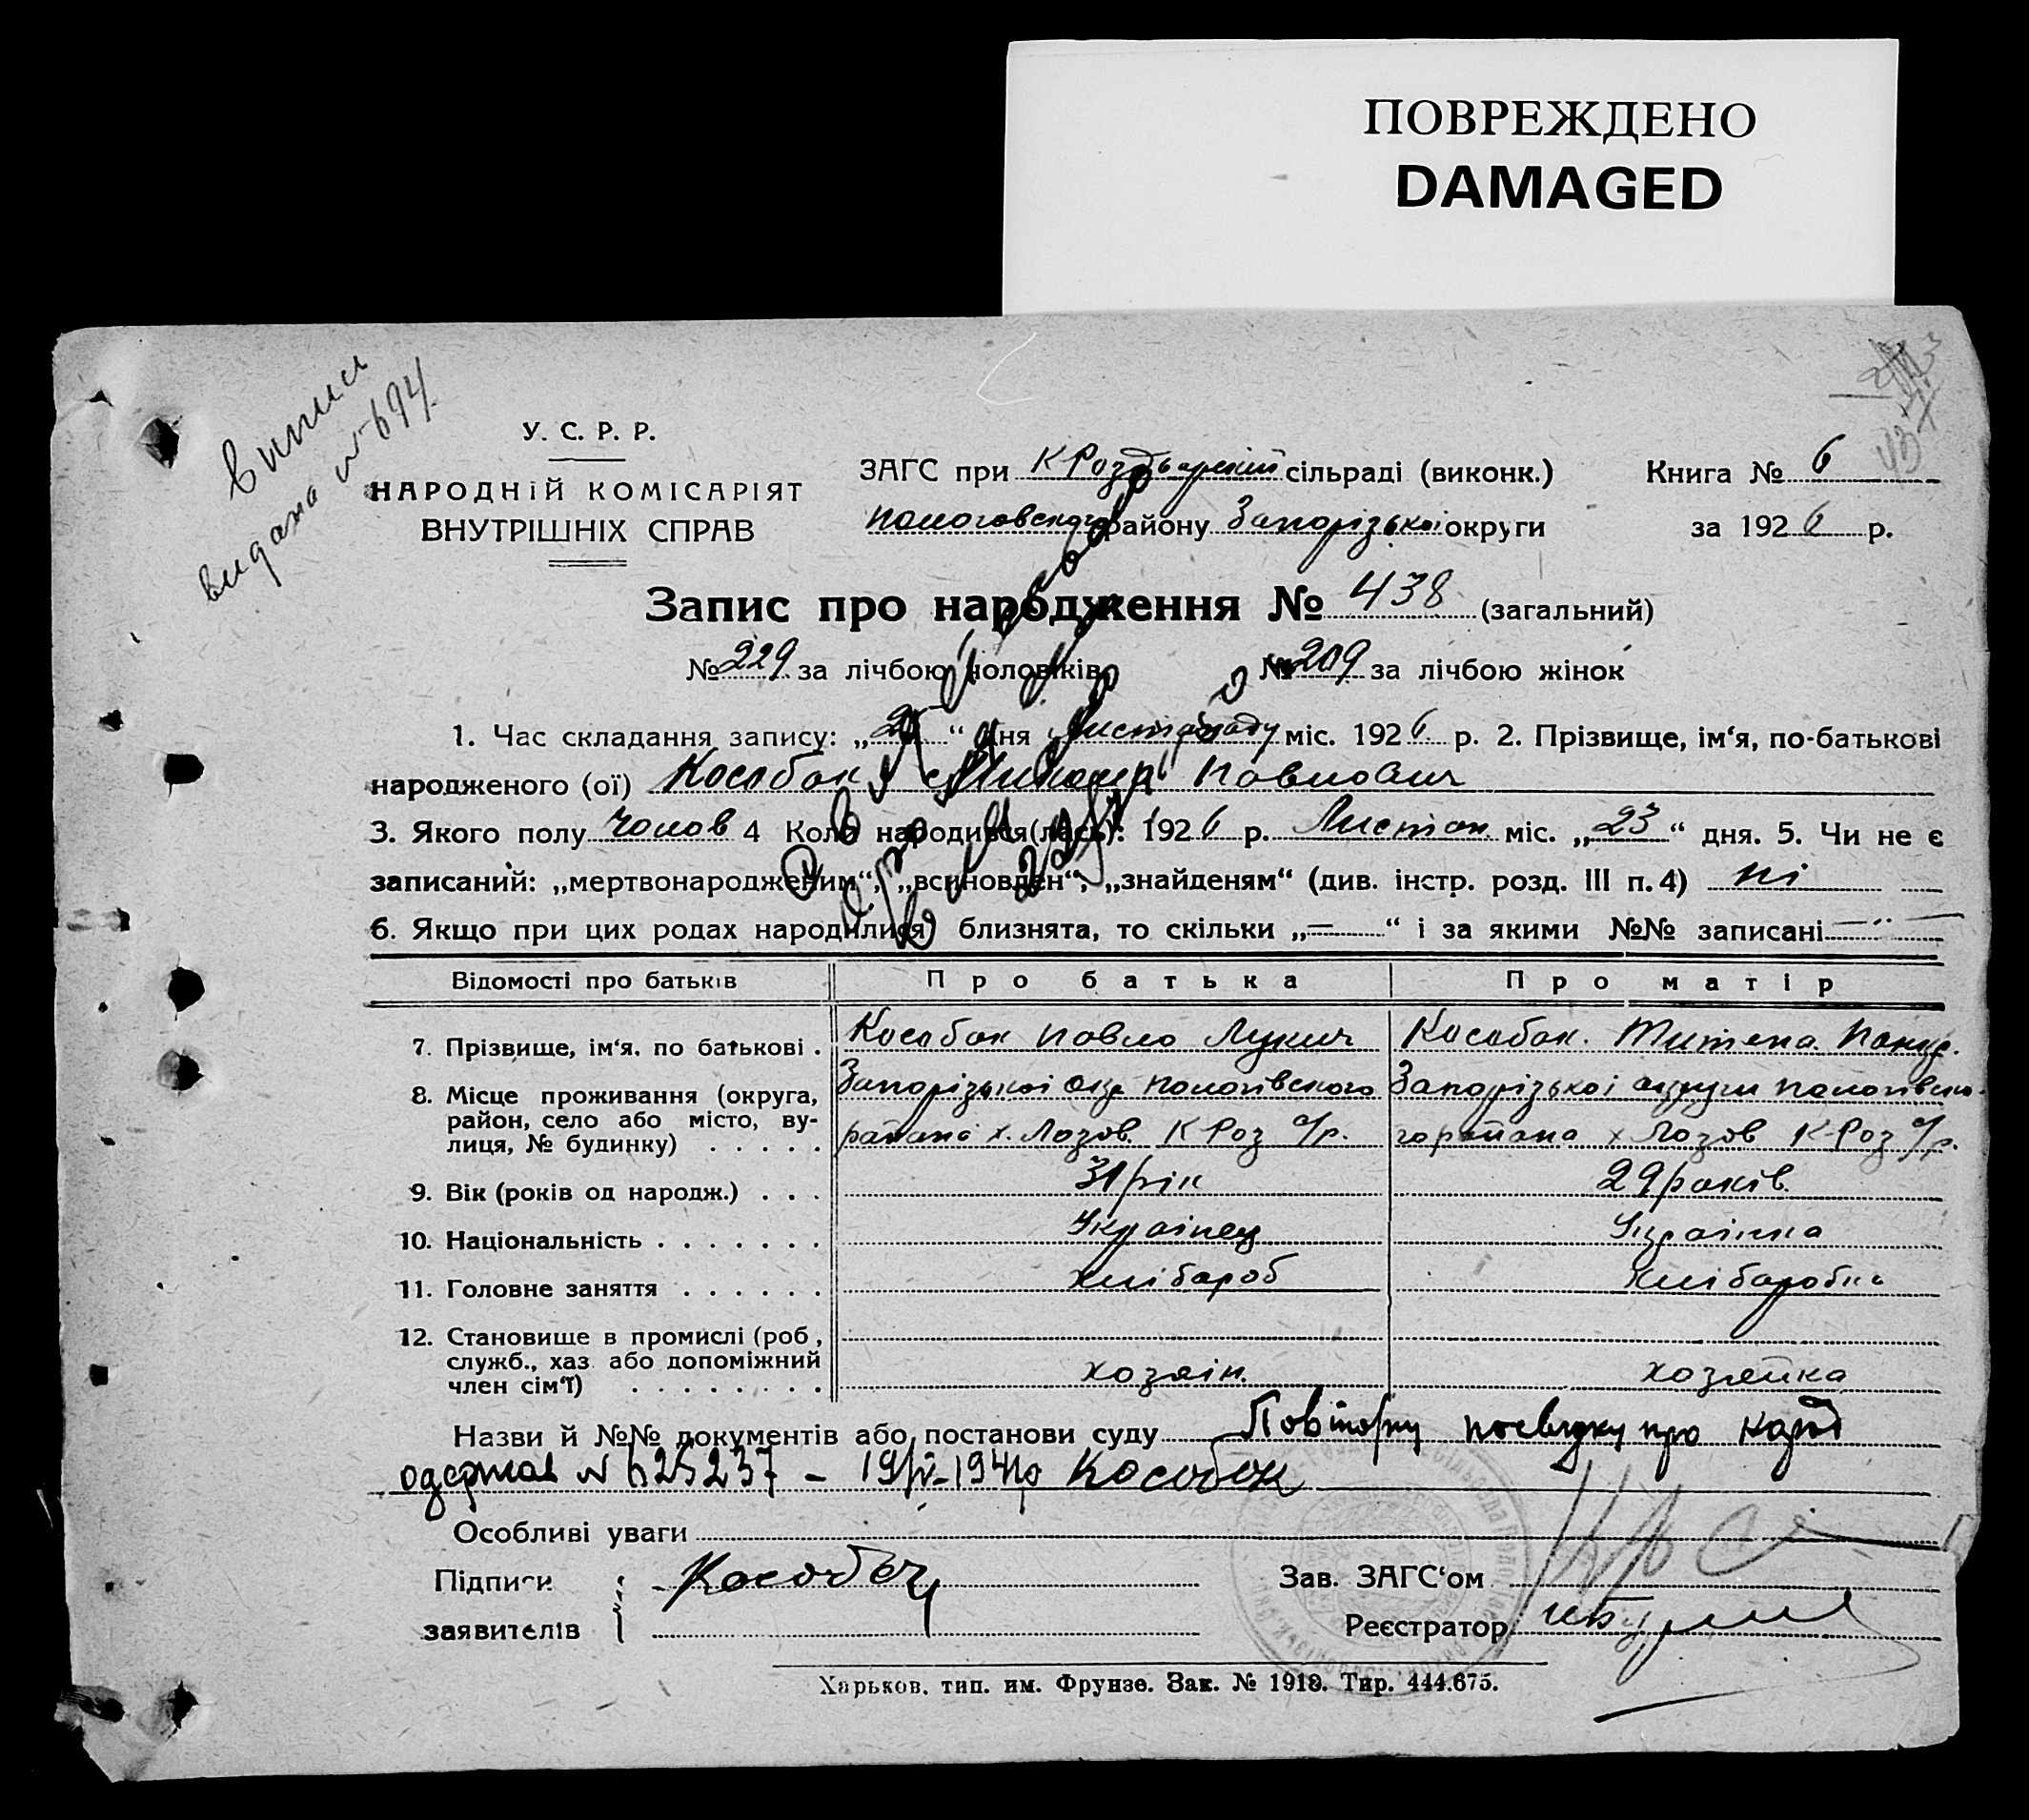 ПОВРЕЖДЕНО
DAMAGED
випис
видана № 694
У. С. Р. Р.
НАРОДНІЙ КОМІСАРІЯТ
ВНУТРІШНІХ СПРАВ
ЗАГС при К Розд сільраді (виконк.)
Пологовского району Запорізькоі округи
Книга № 6
за 1926 р.
Запис про народження № 438 (загальний)
№ 229 за лічбою чоловіків № 209 за лічбою жінок
1. Час складання запису: „25“ дня Листопаду міс. 1926 р. 2. Прізвище, ім‘я, по-батькові
народженого (ої) Кособок Павлович
3. Якого полу чолов 4 Коли народився(лась): 1926 р. Листоп міс. „23“ дня. 5. Чи не є
записаний: „мертвонародженим“, „всиновлен“, „знайденям“ (див. інстр. розд. III п. 4) ні
6. Якщо при цих родах народилися близнята, то скільки „—“ і за якими №№ записані —
Відомості про батьків Про батька Про матір
7. Прізвище, ім‘я, по батькові . Кособок Павло Лукич Кособок.
8. Місце проживання (округа, Запорізькоі окр Пологівского Запорізькоі округи Пологівско-
район, село або місто, ву- района х. Лозов. К Роз с/р. го района х Лозов К-Роз с/р.
лиця, № будинку) . . . . .
9. Вік (років од народж.) . . . 31 рік 29 років.
10. Національність . . . . . . . Украінец Украінка
11. Головне заняття . . . . . . хлібороб хліборобка
12. Становище в промислі (роб,
служб., хаз. або допоміжний
член сім‘ї) . . . . . . . . хозяін. хозяйка
Назви й №№ документів або постанови суду Повторну посвідку про народ
одержав № 625237 – 19/IV-1941р Кособок
Особливі уваги
Підписи
заявителів
Зав. ЗАГС‘ом
Реєстратор
Харьков, тип. им. Фрунзе. Зак. № 1918. Тир. 444.675.